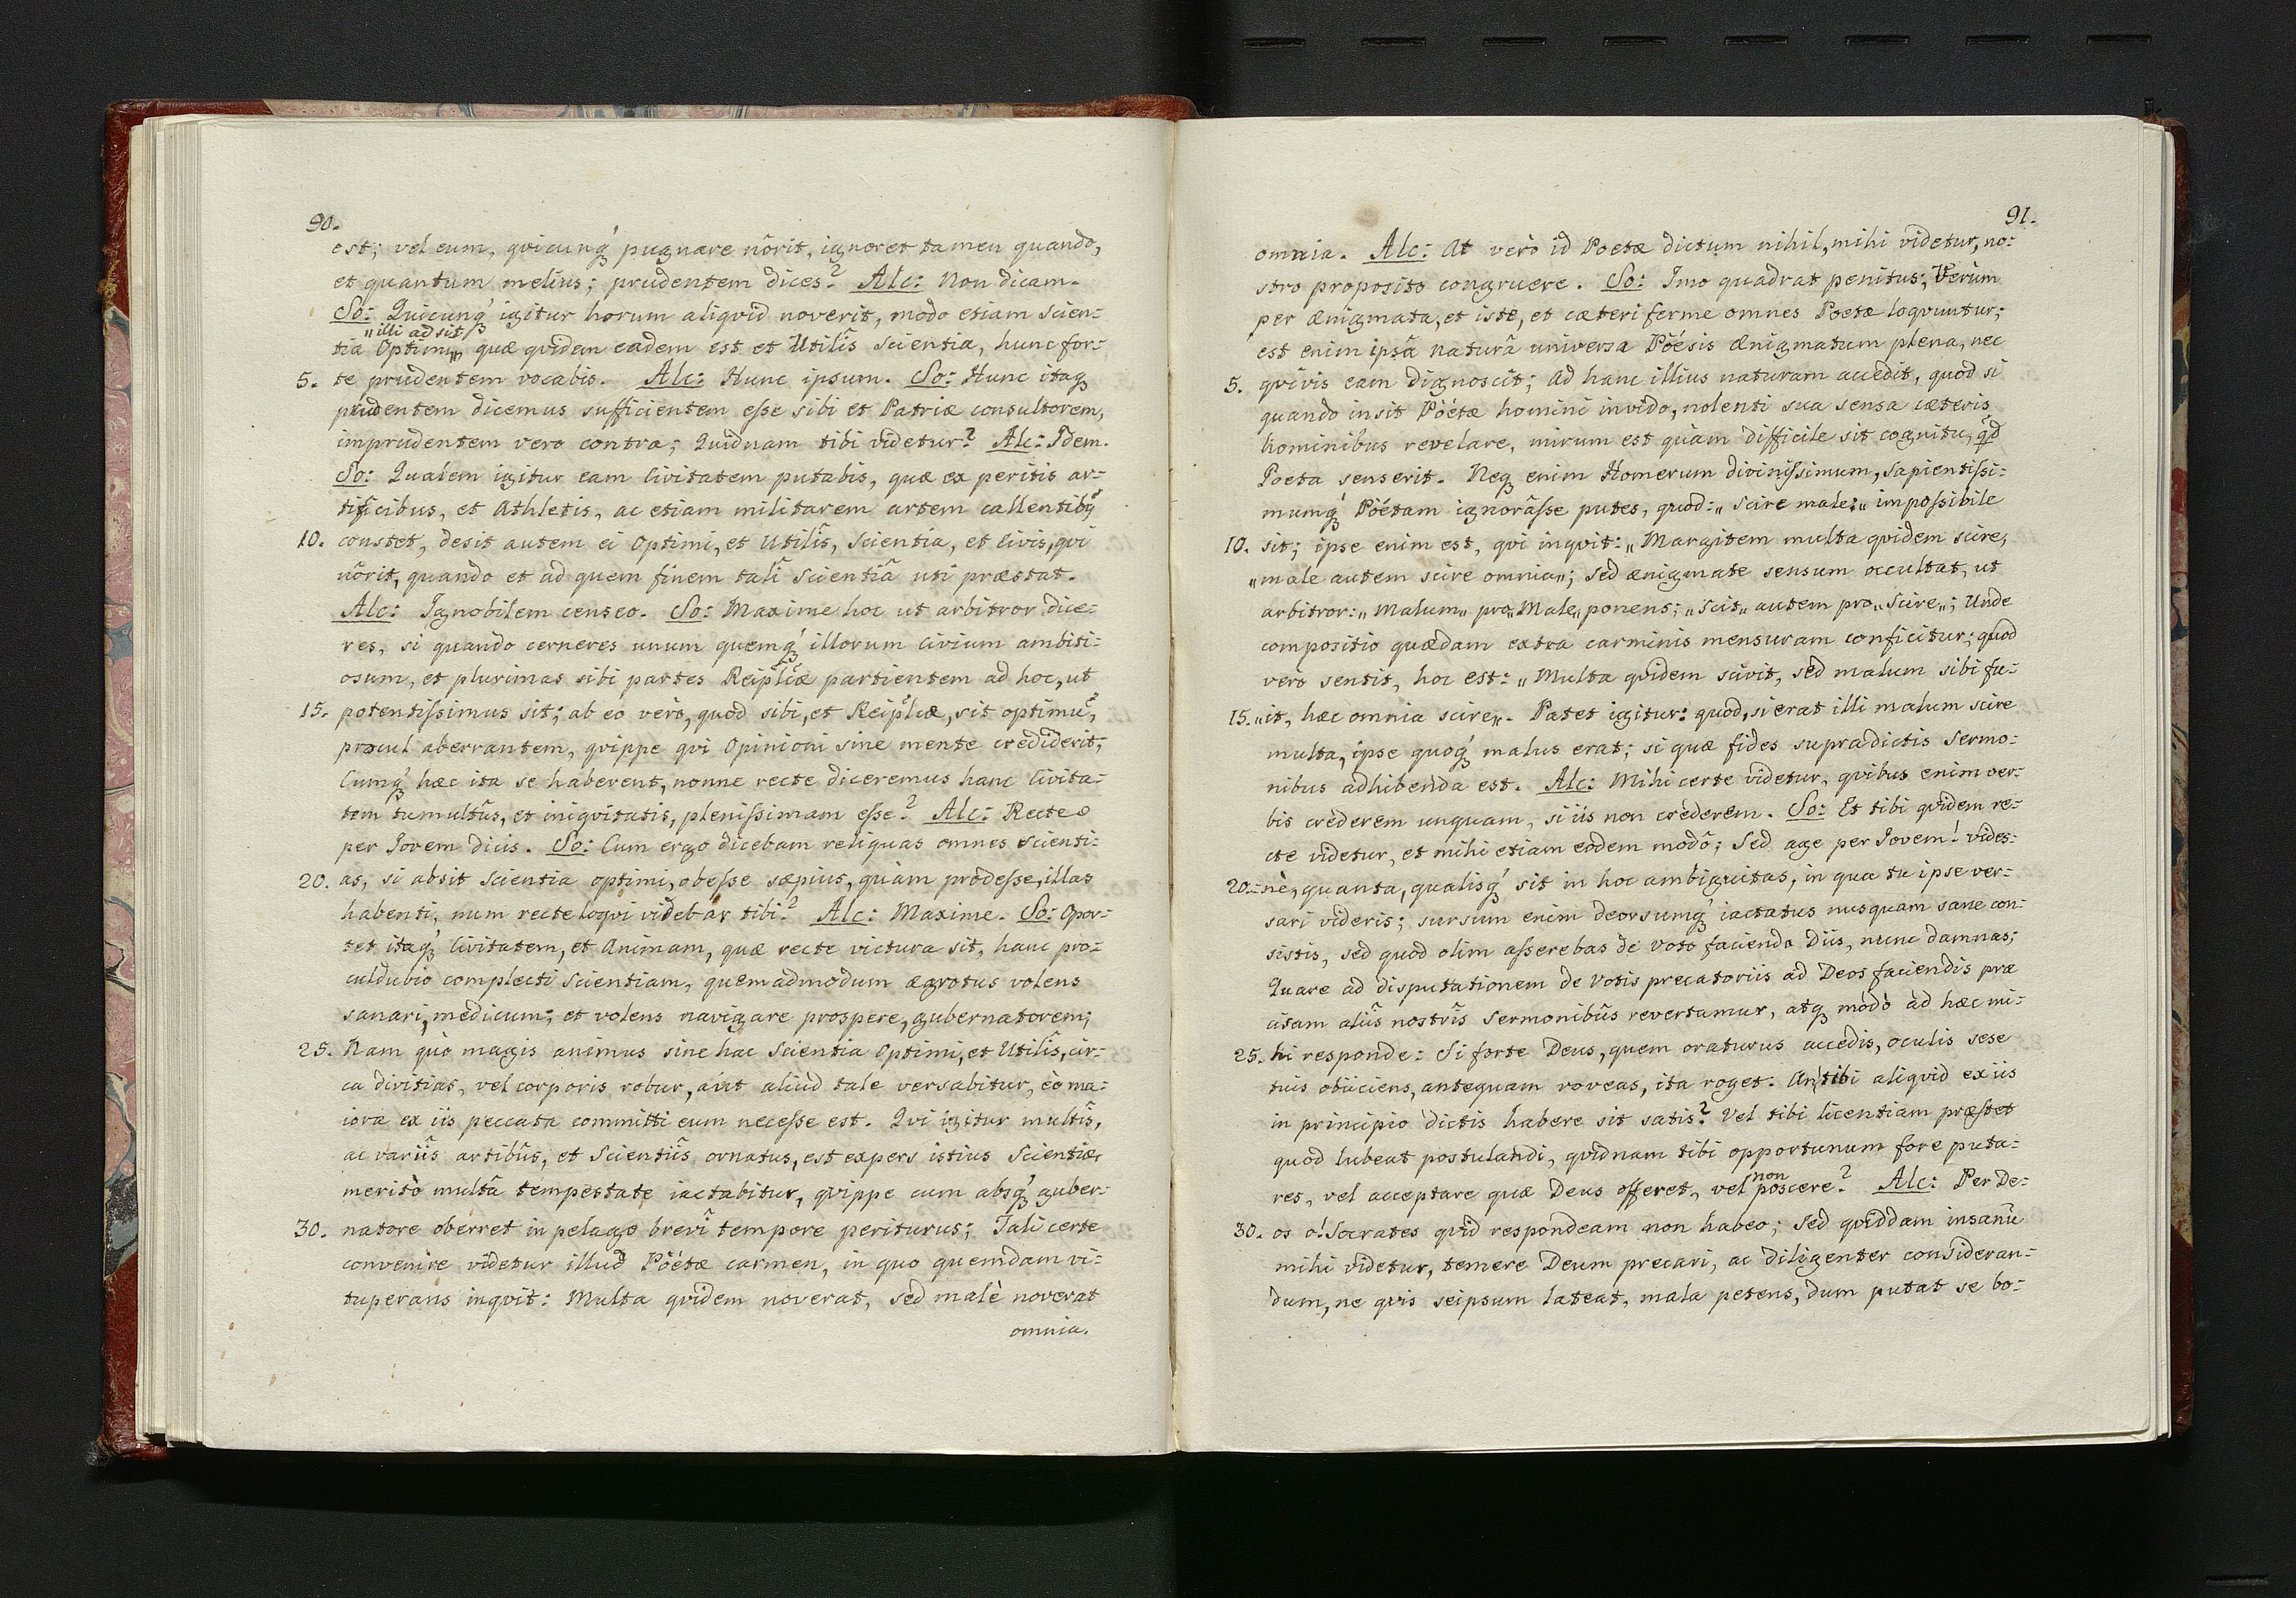 90.
est; vel eum, qvicunq́ꝫ pugnare nôrit, ignoret tamen quando,
et quantum melius; prudentem dices? Alc: Non dicam.
So: Quicunq́ꝫ igitur horum aliqvid noverit, modo etiam scien:
„illi adsit
tia Optimi„, quæ qvidem eadem est et Utilis̃ scientia, hunc for:
5. te prudentem vocabis. Alc: Hunc ipsum. So: Hunc itaqꝫ
prudentem dicemus sufficientem eſse sibi et Patriæ consultorem,
imprudentem vero contra; Quidnam tibi videtur? Alc: Idem.
So: Qualem igitur eam Civitatem putabis, quæ ex peritis ar:
tificibus, et Athletis, ac etiam militarem artem callentibq̃
10. constet, desit autem ei Optimi, et Utilis̃, Scientia, et Civis, qvi
nôrit, quando et ad quem finem talî Scientiâ uti præstat.
Alc: Ignobilem censeo. So: Maxime hoc ut arbitror dice:
res, si quando cerneres unum quemq́ꝫ illorum Civium ambiti:
osum, et plurimas sibi partes Reipl̃cæ partientem ad hoc, ut
15. potentiſsimus sit; ab eo verò, quod sibi, et Reipl̃cæ, sit optimũ,
procul aberrantem, qvippe qvi Opinioni sine mente crediderit;
Cumq́ꝫ hæc ita se haberent, nonne recte diceremus hanc Civita:
tem tumultûs, et iniqvitatis, pleniſsimam eſse? Alc: Recte
per Jovem dicis. So: Cum ergo dicebam reliquas omnes scienti:
20. as, si absit scientia optimi, obeſse sæpius, quàm prodeſse, illas
habenti, num recte loqvi videbar tibi? Alc: Maxime. So: Opor:
tet itaq́ꝫ Civitatem, et Animam, quæ recte victura sit, hanc pro:
culdubio complecti scientiam, quemadmodum ægrotus volens
sanari, medicum; et volens navigare prospere, gubernatorem;
25. Nam quò magis animus sine hac Scientia Optimi, et Utilis̃, cir:
ca divitias, vel corporis robur, aut aliud tale versabitur, eò ma:
iora ex iis peccata committi eum neceſse est. Qvi igitur multis̃,
ac variis̃ artibûs, et Scientiis̃ ornatus, est expers istius Scientiæ,
meritò multâ tempestate iactabitur, qvippe cum absq́ꝫ guber:
30. natore oberret in pelago brevî tempore periturus; Tali certe
convenire videtur illud Pöétæ carmen, in quo quemdam vi:
tuperans inqvit: Multa qvidem noverat, sed malè noverat
omnia.
91.
omnia. Alc: At verò id Poetæ dictum nihil, mihi videtur, no:
stro proposito congruere. So: Imo quadrat penitus; Verùm
per ænigmata, et iste, et cæteri ferme omnes Poetæ loqvuntur;
est enim ipsâ naturâ universa Pöésis ænigmatum plena, nec
5. qvivis eam dignoscit; Ad hanc illius naturam accedit, quod si
quando insit Pöétæ homini invido, nolenti sua sensa cæteris
hominibus revelare, mirum est quàm difficile sit cognitu, qd̃
Poeta senserit. Neqꝫ enim Homerum diviniſsimum, sapientiſsi:
mumq́ꝫ Pöétam ignorâſse putes, quod: „scire male:„ impoſsibile
10. sit; ipse enim est, qvi inqvit: „Margitem multa qvidem scire,
„male autem scire omnia„; sed ænigmate sensum occultat, ut
arbitror: „Malum„ pro „Male„ ponens; „Scit„ autem pro „Scire„; Unde
compositio quædam extra carminis mensuram conficitur; quod
vero sentit, hoc est: „Multa qvidem scivit, sed malum sibi fu:
15. „it, hæc omnia scire„. Patet igitur: quod, si erat illi malum scire
multa, ipse quoq́ꝫ malus erat; si quæ fides supradictis sermo:
nibus adhibenda est. Alc: Mihi certe videtur, qvibus enim ver:
bis crederem unquam, si iis non crederem. So: Et tibi qvidem re:
cte videtur, et mihi etiam eodem modô; Sed age per Jovem! vides:
20. :nè, quanta, qualisq́ꝫ sit in hoc ambiguitas, in qua tu ipse ver:
sari videris; sursum enim deorsumq́ꝫ iactatus nusquam sane con:
sistis, sed quod olim aſserebas de voto faciendo Diis, nunc damnas;
Quare ad disputationem de Votis precatoriis ad Deos faciendis præ
cisam aliis̃ nostris̃ sermonibûs revertamur, atqꝫ modò ad hæc mi:
25. hi responde: Si forte Deus, quem oraturus accedis, oculis sese
tuis obiiciens, antequam voveas, ita roget: An tibi aliqvid ex iis
in principio dictis habere sit satis? Vel tibi licentiam præstet
quod lubeat postulandi, qvidnam tibi opportunum fore puta:
non
res, vel acceptare quæ Deus offeret, vel poscere? Alc: Per De:
30. os o! Socrates qvid respondeam non habeo; sed qviddam insanũ
mihi videtur, temere Deum precari, ac diligenter consideran:
dum, ne qvis seipsum lateat, mala petens, dum putat se bo: